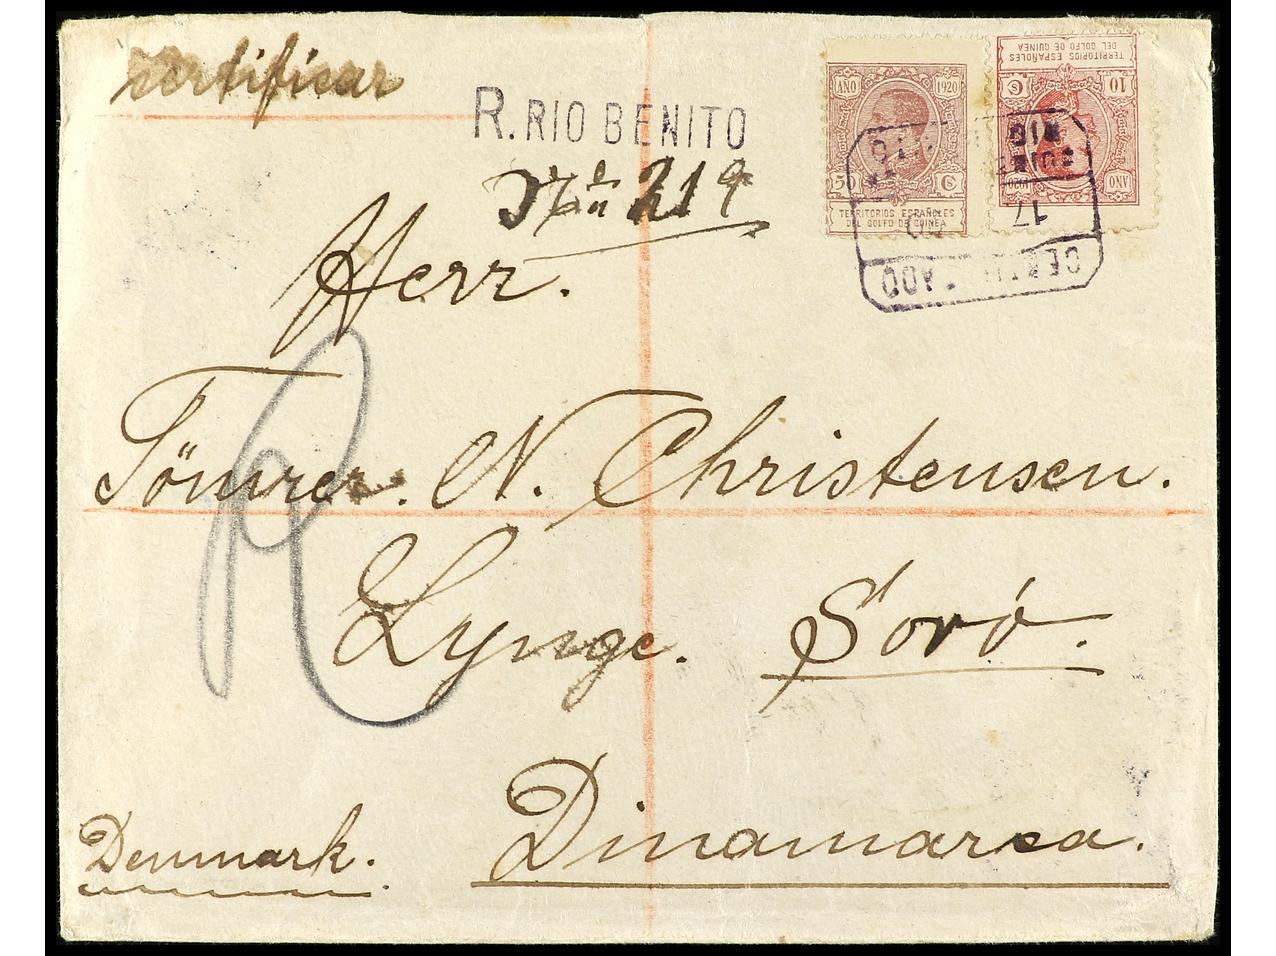 certificar
R. RIO BENITO
Nº 219
AÑO 1920
50 Cs
TERRITORIOS ESPAÑOLES
DEL GOLFO DE GUINEA
TERRITORIOS ESPAÑOLES
DEL GOLFO DE GUINEA
10 Cs
AÑO 1920
RIO
17
Herr.
Tömrer. N. Christensen.
Lynge. Sorö.
R
Denmark. Dinamarca.